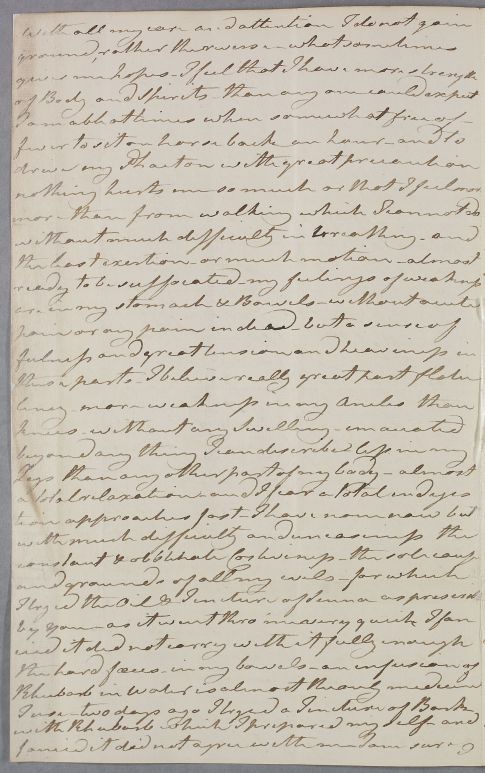 with all my care and attention I do not gain
ground, rather the worse - what sometimes
gives me hopes - I feel that I have more strength
of Body and Spirits than any one could expect
I am able at times when somewhat free of
fever to sit on horse back an hour - and to
drive my Phaeton with great precaution
nothing hurts me so much or that I feel more
more than from walking which I cannot do
without much difficulty in breathing - and
the least exertion or much motion - almost
ready to be suffocated - my feelings of weakness
are in my stomach & Bowels - without acute
pain or any pain indeed but a sense of
fulness and great tension and heaviness in
these parts - I believe really great part flatu
lency - more weakness in my Ancles than
knees - without any swelling - emaciated
beyond any thing I can describe less in my
Legs than any other part of my body - almost
a total relaxation - and I fear a total indiges
tion approaches fast I have none now but
with much difficulty and uneasiness the
constant & obstinate Costiveness - the sole cause
and grounds of all my evils - for which
I tryed the Oil & Tincture of Senna as prescribed
by you - as it went thro' me very quick I fan
cied it did not carry with it fully enough
the hard fæces in my bowels - an infusion of
Rhubarb in Water is almost the only medicine
I use - two days ago I tryed a Tincture of Bark
with Rhubarb which I prepared my self - and
fancied it did not agree with me I am sure